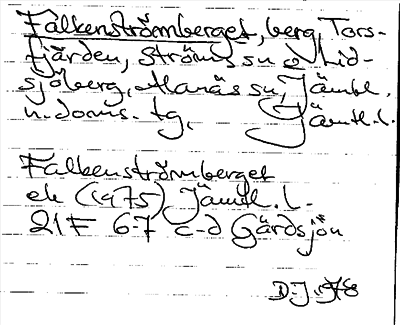 Falkenströmberget, berg, Tors-
fjärden, Ströms sn o Lid-
sjöberg, Alanäs sn, Jämtl.
n. doms. tg, Jämtl. l.
Falkenströmberget
ek (1975) Jämtl. l.
21F 6-7 c-d Gärdsjön
D-J 1978